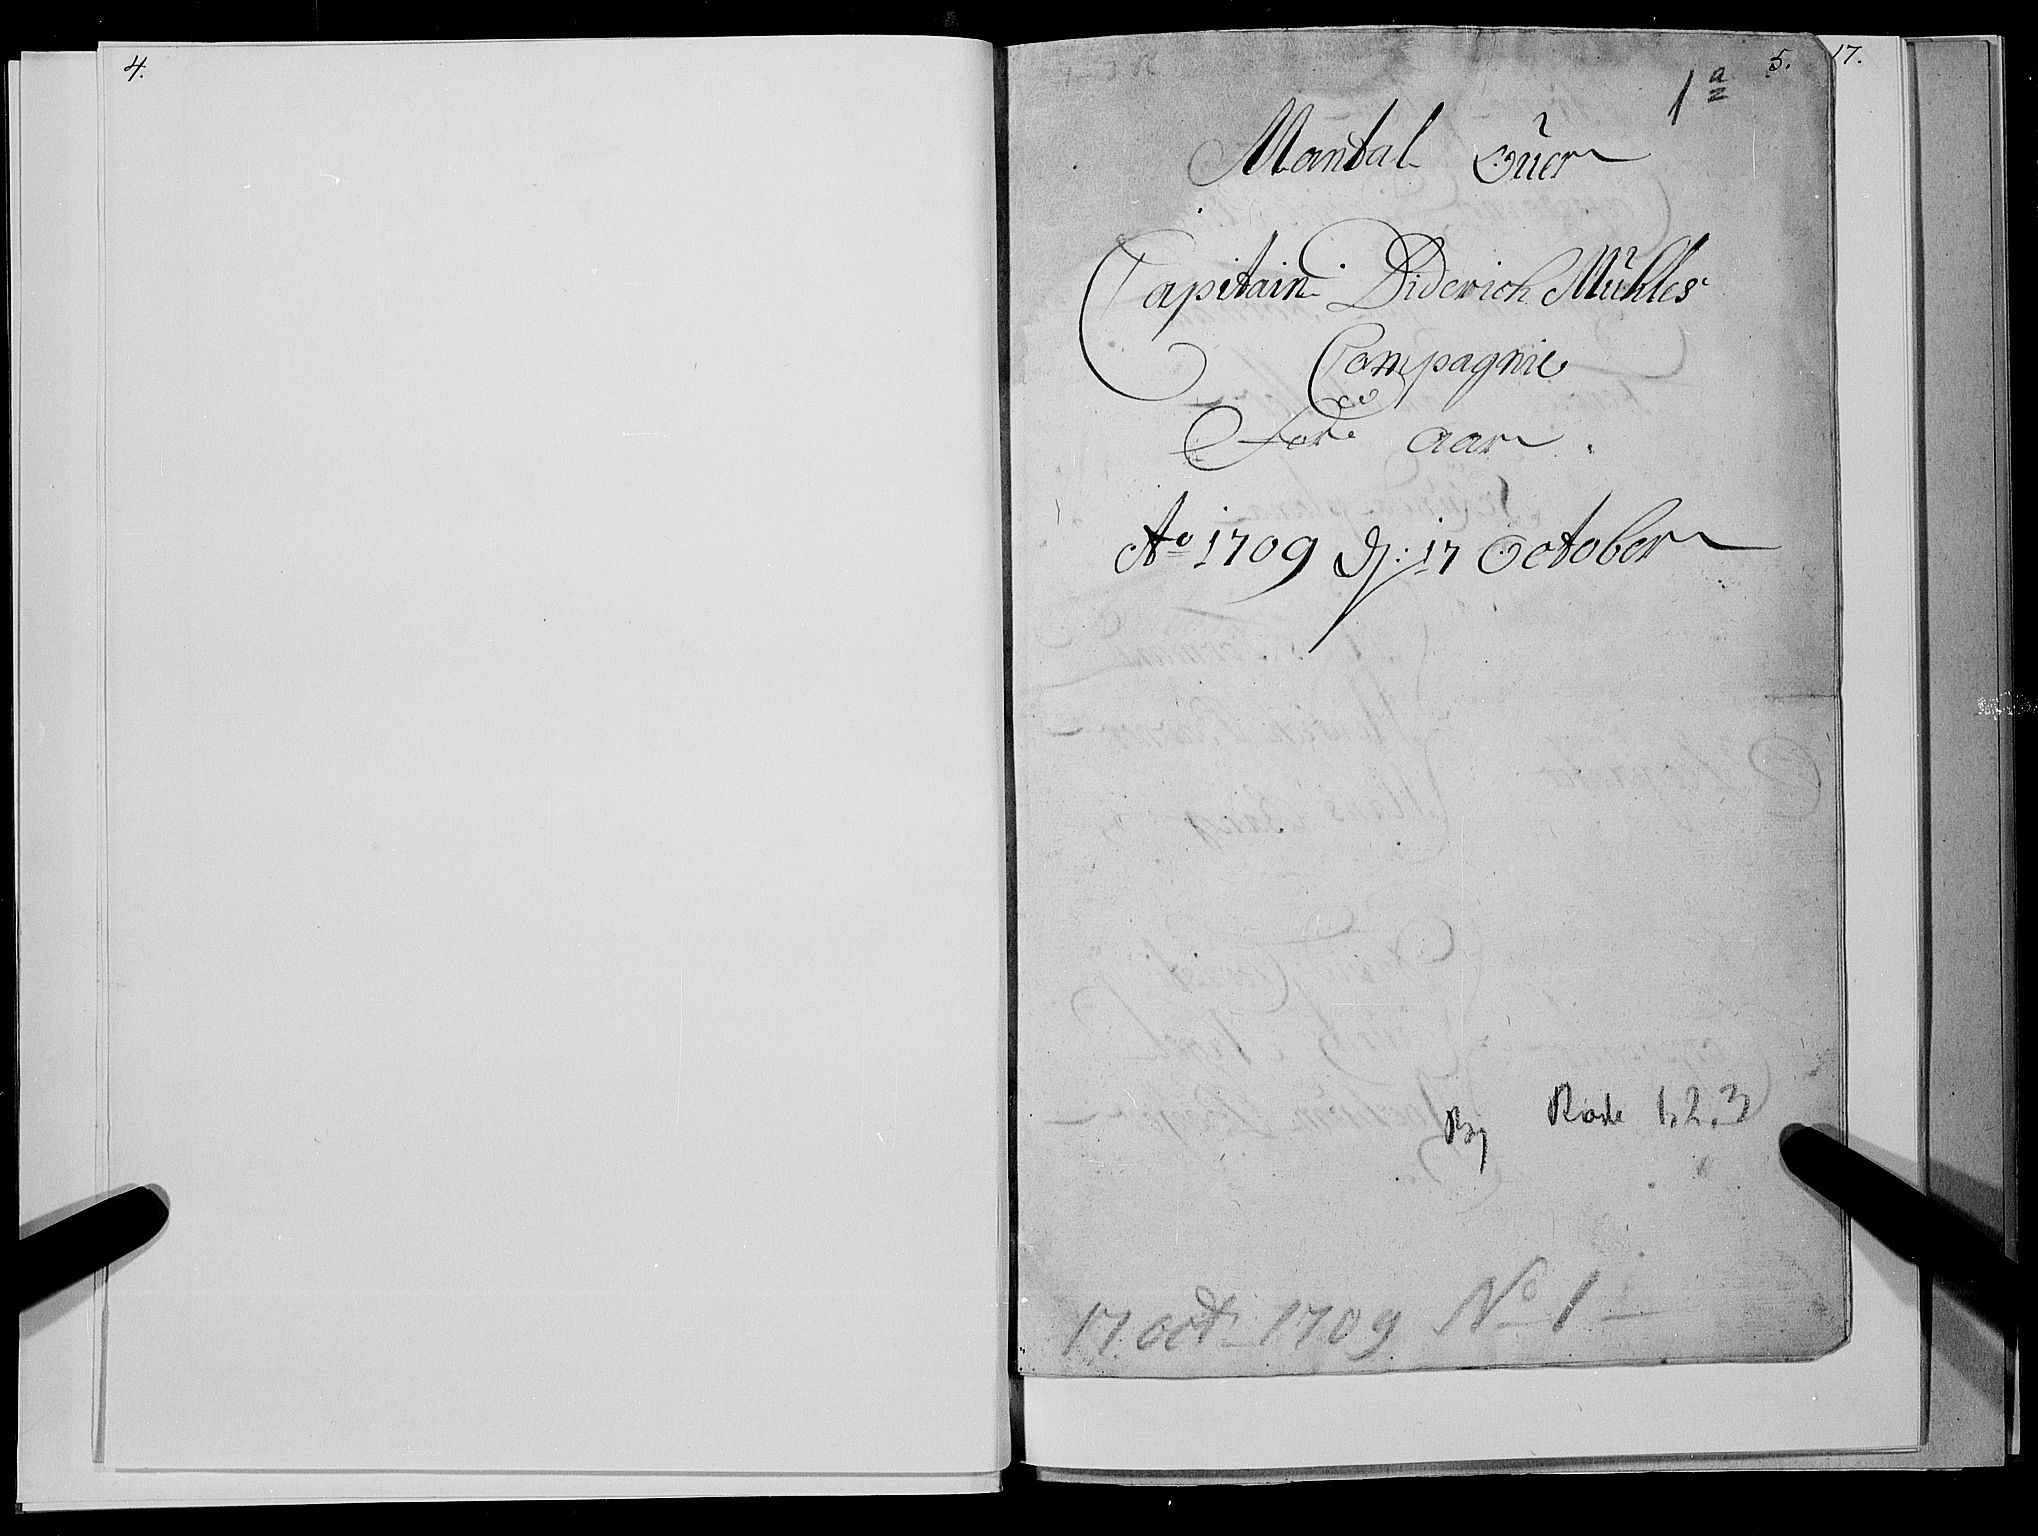 4.
5.
17.
1 a
Mantal Över
Capitain Diderich Mühles
Compagnie
For aar
Ao 1709 d: 17 October
By Rode 1, 2, 3
17. oct. 1709 No 1